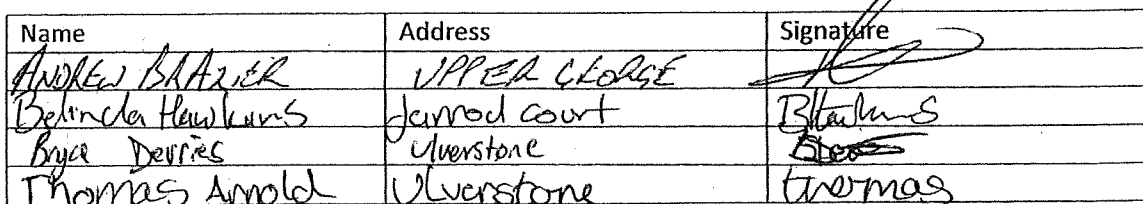 Name Address Signature
ANDREW BRAZIER UPPER GEORGE
Belinda Hawkins Jarrod court BHawkins
Bryce Devries Ulverstone
Thomas Arnold Ulverstone thomas